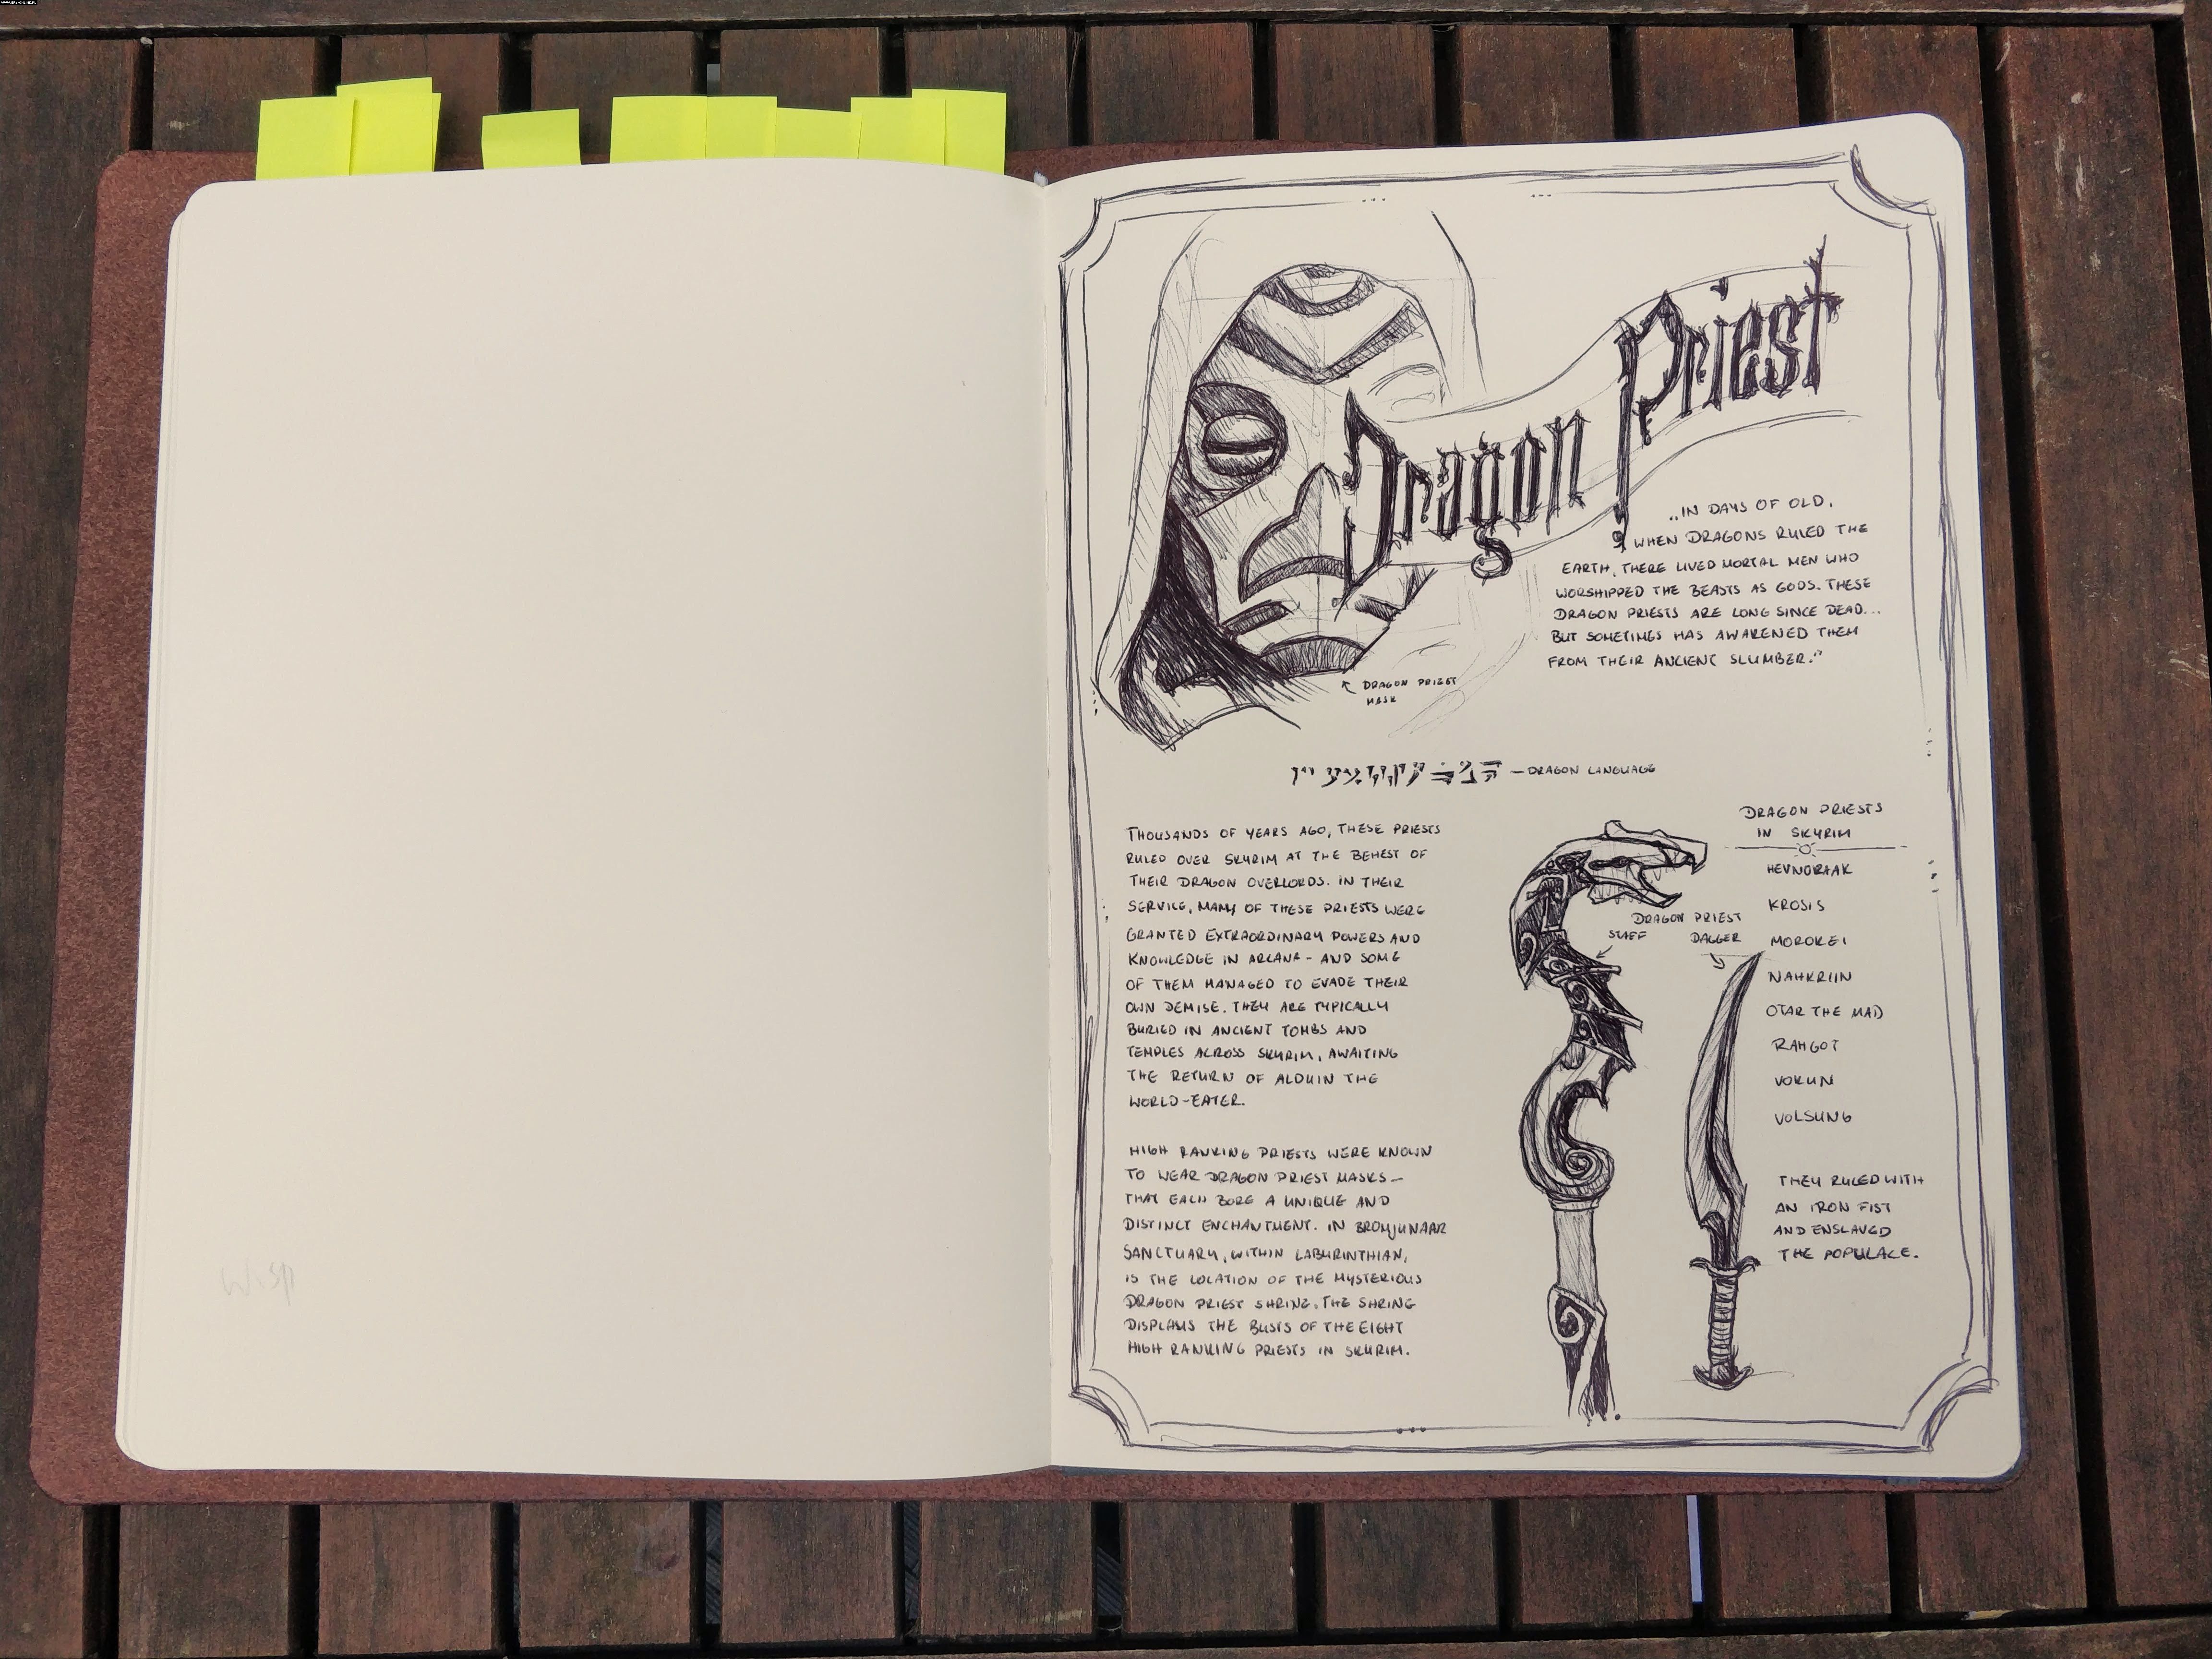 WWW.GRY-ONLINE.PL
Dragon Priest
„IN DAYS OF OLD,
WHEN DRAGONS RULED THE
EARTH, THERE LIVED MORTAL MEN WHO
WORSHIPPED THE BEASTS AS GODS. THESE
DRAGON PRIESTS ARE LONG SINCE DEAD...
BUT SOMETIMES HAS AWAKENED THEM
FROM THEIR ANCIENT SLUMBER."
DRAGON PRIEST
MASK
— DRAGON LANGUAGE
THOUSANDS OF YEARS AGO, THESE PRIESTS
RULED OVER SKYRIM AT THE BEHEST OF
THEIR DRAGON OVERLORDS. IN THEIR
SERVICE, MANY OF THESE PRIESTS WERE
GRANTED EXTRAORDINARY POWERS AND
KNOWLEDGE IN ARCANA - AND SOME
OF THEM MANAGED TO EVADE THEIR
OWN DEMISE. THEY ARE TYPICALLY
BURIED IN ANCIENT TOMBS AND
TEMPLES ACROSS SKYRIM, AWAITING
THE RETURN OF ALDUIN THE
WORLD-EATER.
HIGH RANKING PRIESTS WERE KNOWN
TO WEAR DRAGON PRIEST MASKS —
THAT EACH BORE A UNIQUE AND
DISTINCT ENCHANTMENT. IN BROMJUNAAR
SANCTUARY, WITHIN LABYRINTHIAN,
IS THE LOCATION OF THE MYSTERIOUS
DRAGON PRIEST SHRINE. THE SHRINE
DISPLAYS THE BUSTS OF THE EIGHT
HIGH RANKING PRIESTS IN SKYRIM.
DRAGON PRIEST
STAFF
DAGGER
DRAGON PRIESTS
IN SKYRIM
HEVNORAAK
KROSIS
MOROKEI
NAHKRIIN
OTAR THE MAD
RAHGOT
VOKUN
VOLSUNG
THEY RULED WITH
AN IRON FIST
AND ENSLAVED
THE POPULACE.